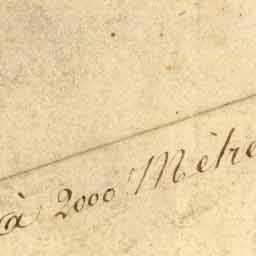 à 2000 Mètre